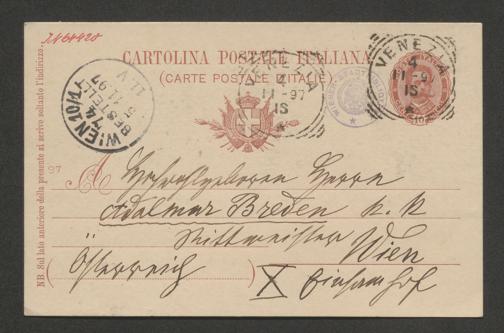 CARTOLINA POSTALE ITALIANA
(CARTE POSTALE D'ITALIE)
VENEZIA
4
11-97
1S
VENEZIA
4
11-97
1S
WIEN 10/2
BESTELLT
5 11 97
NB. Sul lato anteriore della presente si scrive soltanto l'indirizzo.
97
A
Hochwohlgeboren Herrn
Adalmar Breden k. k
Rittmeister Wien
(Österreich) X Einsamhof